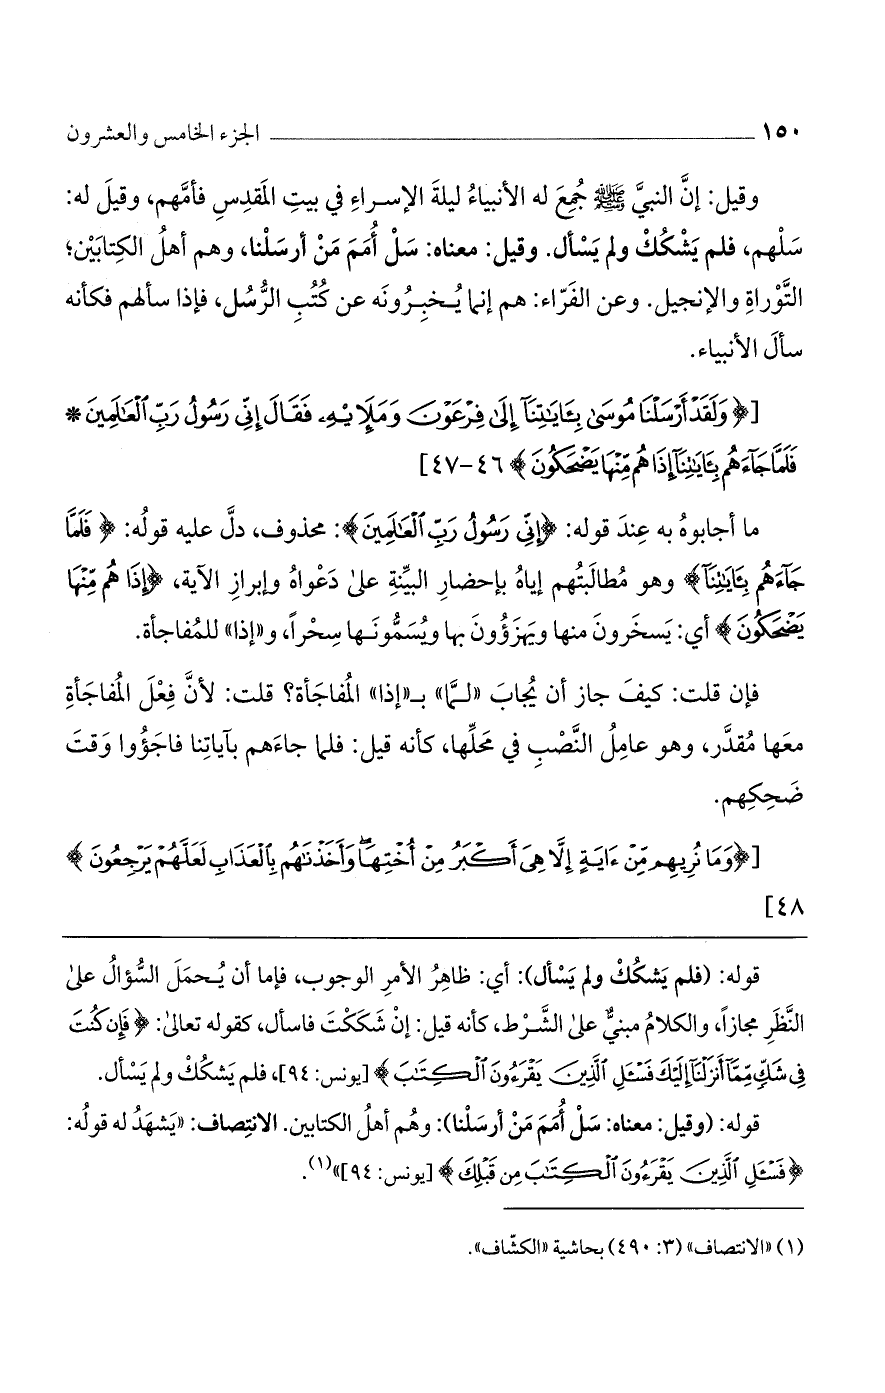 ١٥٠ ــــــــــــــــــــ الجزء الخامس والعشرون
وقيل: إنَّ النبيَّ ﷺ جُمِعَ له الأنبياءُ ليلةَ الإسراءِ في بيتِ المَقدِسِ فأمَّهم، وقيلَ له:
سَلْهم، فلم يَشْكُكْ ولم يَسْأل. وقيل: معناه: سَلْ أُمَمَ مَنْ أرسَلْنا، وهم أهلُ الكِتابَيْن؛
التَّوْراةِ والإنجيل. وعن الفَرّاء: هم إنما يُـخبِـرُونَه عن كُتُبِ الرُّسُل، فإذا سألهم فكأنه
سألَ الأنبياء.
[﴿وَلَقَدْ أَرْسَلْنَا مُوسَىٰ بِـَٔايَـٰتِنَآ إِلَىٰ فِرْعَوْنَ وَمَلَإِيْهِۦ فَقَالَ إِنِّى رَسُولُ رَبِّ ٱلْعَـٰلَمِينَ *
فَلَمَّا جَآءَهُم بِـَٔايَـٰتِنَآ إِذَا هُم مِّنْهَا يَضْحَكُونَ﴾ ٤٦-٤٧]
ما أجابوهُ به عِندَ قوله: ﴿إِنِّى رَسُولُ رَبِّ ٱلْعَـٰلَمِينَ﴾: محذوف، دلَّ عليه قولُه: ﴿فَلَمَّا
جَآءَهُم بِـَٔايَـٰتِنَآ﴾ وهو مُطالَبتُهم إياهُ بإحضارِ البيِّنةِ علىٰ دَعْواهُ وإبرازِ الآية، ﴿إِذَا هُم مِّنْهَا
يَضْحَكُونَ﴾ أي: يَسخَرونَ منها ويَهزَؤُونَ بها ويُسَمُّونَـها سِحْراً، و«إذا» للمُفاجأة.
فإن قلت: كيفَ جاز أن يُجابَ «لـمَّا» بـ«إذا» المُفاجَأة؟ قلت: لأنَّ فِعْلَ المُفاجَأةِ
معَها مُقدَّر، وهو عامِلُ النَّصْبِ في مَحَلِّها، كأنه قيل: فلما جاءَهم بآياتِنا فاجَؤُوا وَقتَ
ضَحِكِهم.
[﴿وَمَا نُرِيهِم مِّنْ ءَايَةٍ إِلَّا هِىَ أَكْبَرُ مِنْ أُخْتِهَا ۖ وَأَخَذْنَـٰهُم بِٱلْعَذَابِ لَعَلَّهُمْ يَرْجِعُونَ﴾
٤٨]
قوله: (فلم يَشكُكْ ولم يَسْأل): أي: ظاهِرُ الأمرِ الوجوب، فإما أن يُـحمَلَ السُّؤالُ علىٰ
النَّظَرِ مجازاً، والكلامُ مبنيٌّ علىٰ الشَّرْط، كأنه قيل: إنْ شَكَكْتَ فاسأل، كقوله تعالىٰ: ﴿فَإِن كُنتَ
فِى شَكٍّ مِّمَّآ أَنزَلْنَآ إِلَيْكَ فَسْـَٔلِ ٱلَّذِينَ يَقْرَءُونَ ٱلْكِتَـٰبَ﴾ [يونس: ٩٤]، فلم يَشكُكْ ولم يَسأل.
قوله: (وقيل: معناه: سَلْ أُمَمَ مَنْ أرسَلْنا): وهُم أهلُ الكتابين. الانتِصاف: «يَشهَدُ له قولُه:
﴿فَسْـَٔلِ ٱلَّذِينَ يَقْرَءُونَ ٱلْكِتَـٰبَ مِن قَبْلِكَ﴾ [يونس: ٩٤]»(١).
(١) «الانتصاف» (٣: ٤٩٠) بحاشية «الكشّاف».